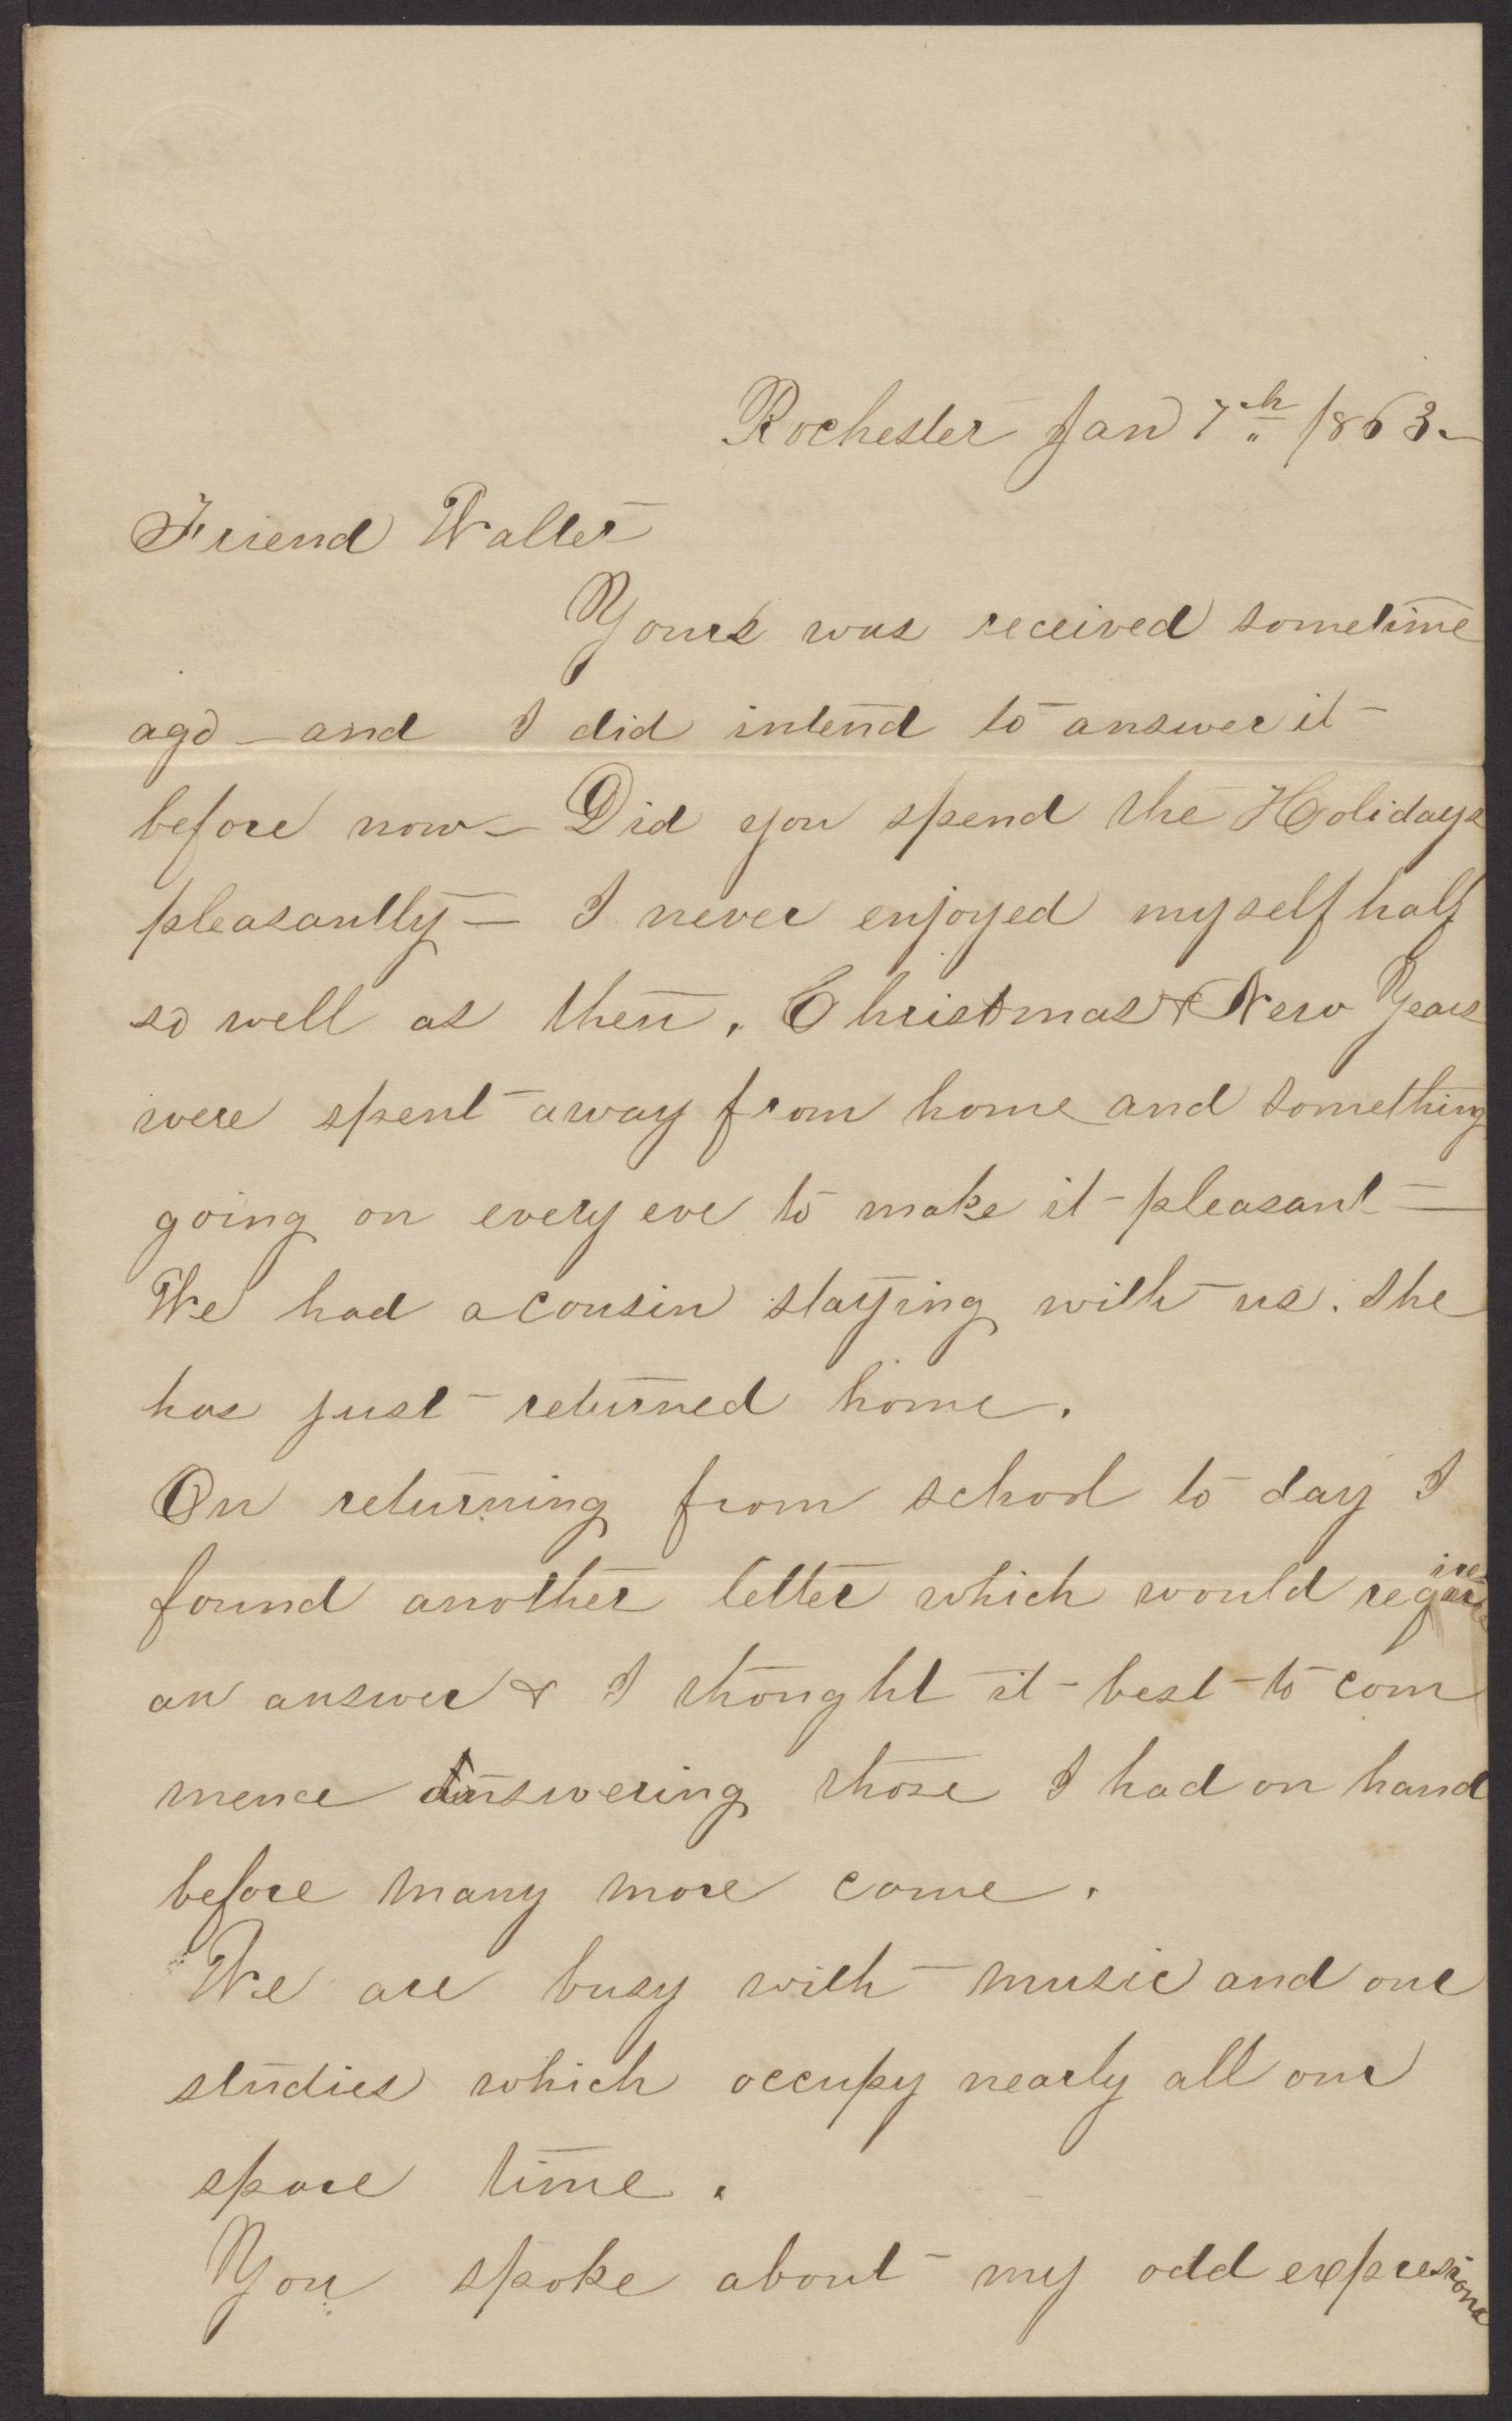 Rochester Jan 7th 1863-
Friend Walter
Yours was received sometime
ago - and I did intend to answer it
before now - Did you spend the Holidays
pleasantly - I never enjoyed myself half
so well as then. Christmas & New Years
were spent away from home and something
going on every eve to make it pleasant -
We had a cousin staying with us. She
has just returned home.
On returning from school to day I
found another letter which would require
an answer & I thought it best to com
mence answering those I had on hand
before many more come.
We are busy with music and our
studies which occupy nearly all our
spare time.
You spoke about my odd expresions